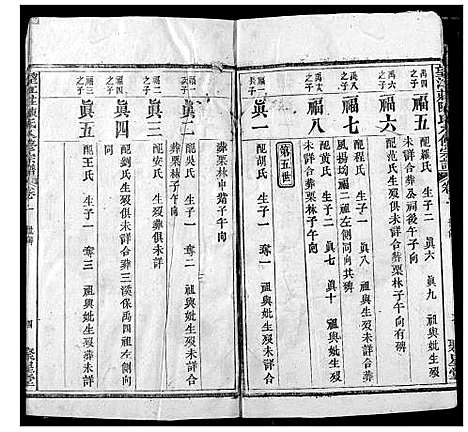 禹四之子
福五
配羅氏 生子二 真六 真九 祖與妣生歿
未詳合葬公祠後午向
禹六之子
福六
配范氏生歿俱未詳合葬栗林子午向有碑
禹八之子
福七
配程氏 生子一 真八 祖與妣生歿未詳合葬
風揚坳福二祖左側同向共碑
福八
配黃氏 生子二 真七 真十 祖與妣生歿
未詳合葬栗林子午向
第五世
福一長子
真一
配胡氏 生子一 奪一 祖與妣生歿未詳合
葬栗林中墳子午向
福一次子
真二
配吳氏 生子一 奪二 祖與妣生歿未詳合
葬栗林子午向
福二之子
真三
配安氏 生歿俱未詳
福三之子
真四
配劉氏生歿俱未詳合葬三溪保禹四祖左側
福四之子
真五
配王氏 生子一 奪三 祖與妣生歿葬未詳
四
聚星堂